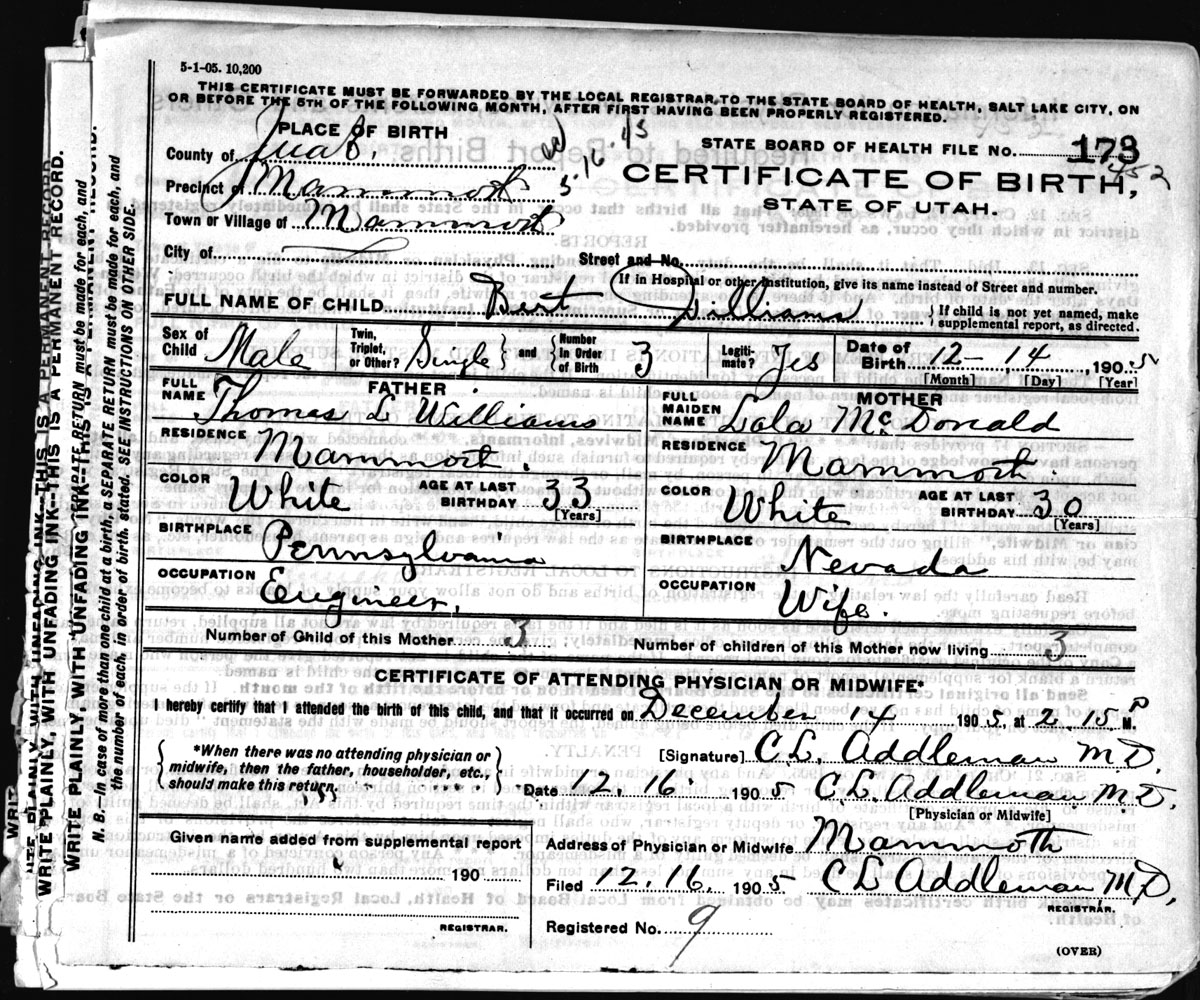 5-1-05. 10,200
THIS CERTIFICATE MUST BE FORWARDED BY THE LOCAL REGISTRAR TO THE STATE BOARD OF HEALTH, SALT LAKE CITY, ON
OR BEFORE THE 5TH OF THE FOLLOWING MONTH, AFTER FIRST HAVING BEEN PROPERLY REGISTERED.
PLACE OF BIRTH
County of Juab.
Precinct of Mammoth
Town or Village of Mammoth
City of
STATE BOARD OF HEALTH FILE No. 173
452
CERTIFICATE OF BIRTH,
STATE OF UTAH.
Street and No.
If in Hospital or other institution, give its name instead of Street and number.
FULL NAME OF CHILD Birt Williams
If child is not yet named, make supplemental report, as directed.
Sex of Child Male Twin, Triplet, or Other? Single and Number in Order of Birth 3 Legitimate? Yes Date of Birth 12-14 1905
[Month] [Day] [Year]
FATHER
FULL NAME Thomas L Williams
RESIDENCE Mammoth.
COLOR White AGE AT LAST BIRTHDAY 33
[Years]
BIRTHPLACE Pennsylvania
OCCUPATION Engineer.
MOTHER
FULL MAIDEN NAME Lola McDonald
RESIDENCE Mammoth.
COLOR White AGE AT LAST BIRTHDAY 30
[Years]
BIRTHPLACE Nevada
OCCUPATION Wife.
Number of Child of this Mother 3 Number of children of this Mother now living 3
CERTIFICATE OF ATTENDING PHYSICIAN OR MIDWIFE*
I hereby certify that I attended the birth of this child, and that it occurred on December 14 1905, at 2 15 P M.
*When there was no attending physician or
midwife, then the father, householder, etc.,
should make this return.
[Signature] C.L. Addleman M.D.
Date 12.16 1905 C.L. Addleman M.D.
[Physician or Midwife]
Given name added from supplemental report
190
REGISTRAR.
Address of Physician or Midwife Mammoth
Filed 12.16, 1905 C L Addleman M.D.
REGISTRAR.
Registered No. 9
(OVER)
WRITE PLAINLY, WITH UNFADING INK—THIS IS A PERMANENT RECORD.
N. B. In case of more than one child at a birth, a SEPARATE RETURN must be made for each, and
the number of each, in order of birth, stated. SEE INSTRUCTIONS ON OTHER SIDE.